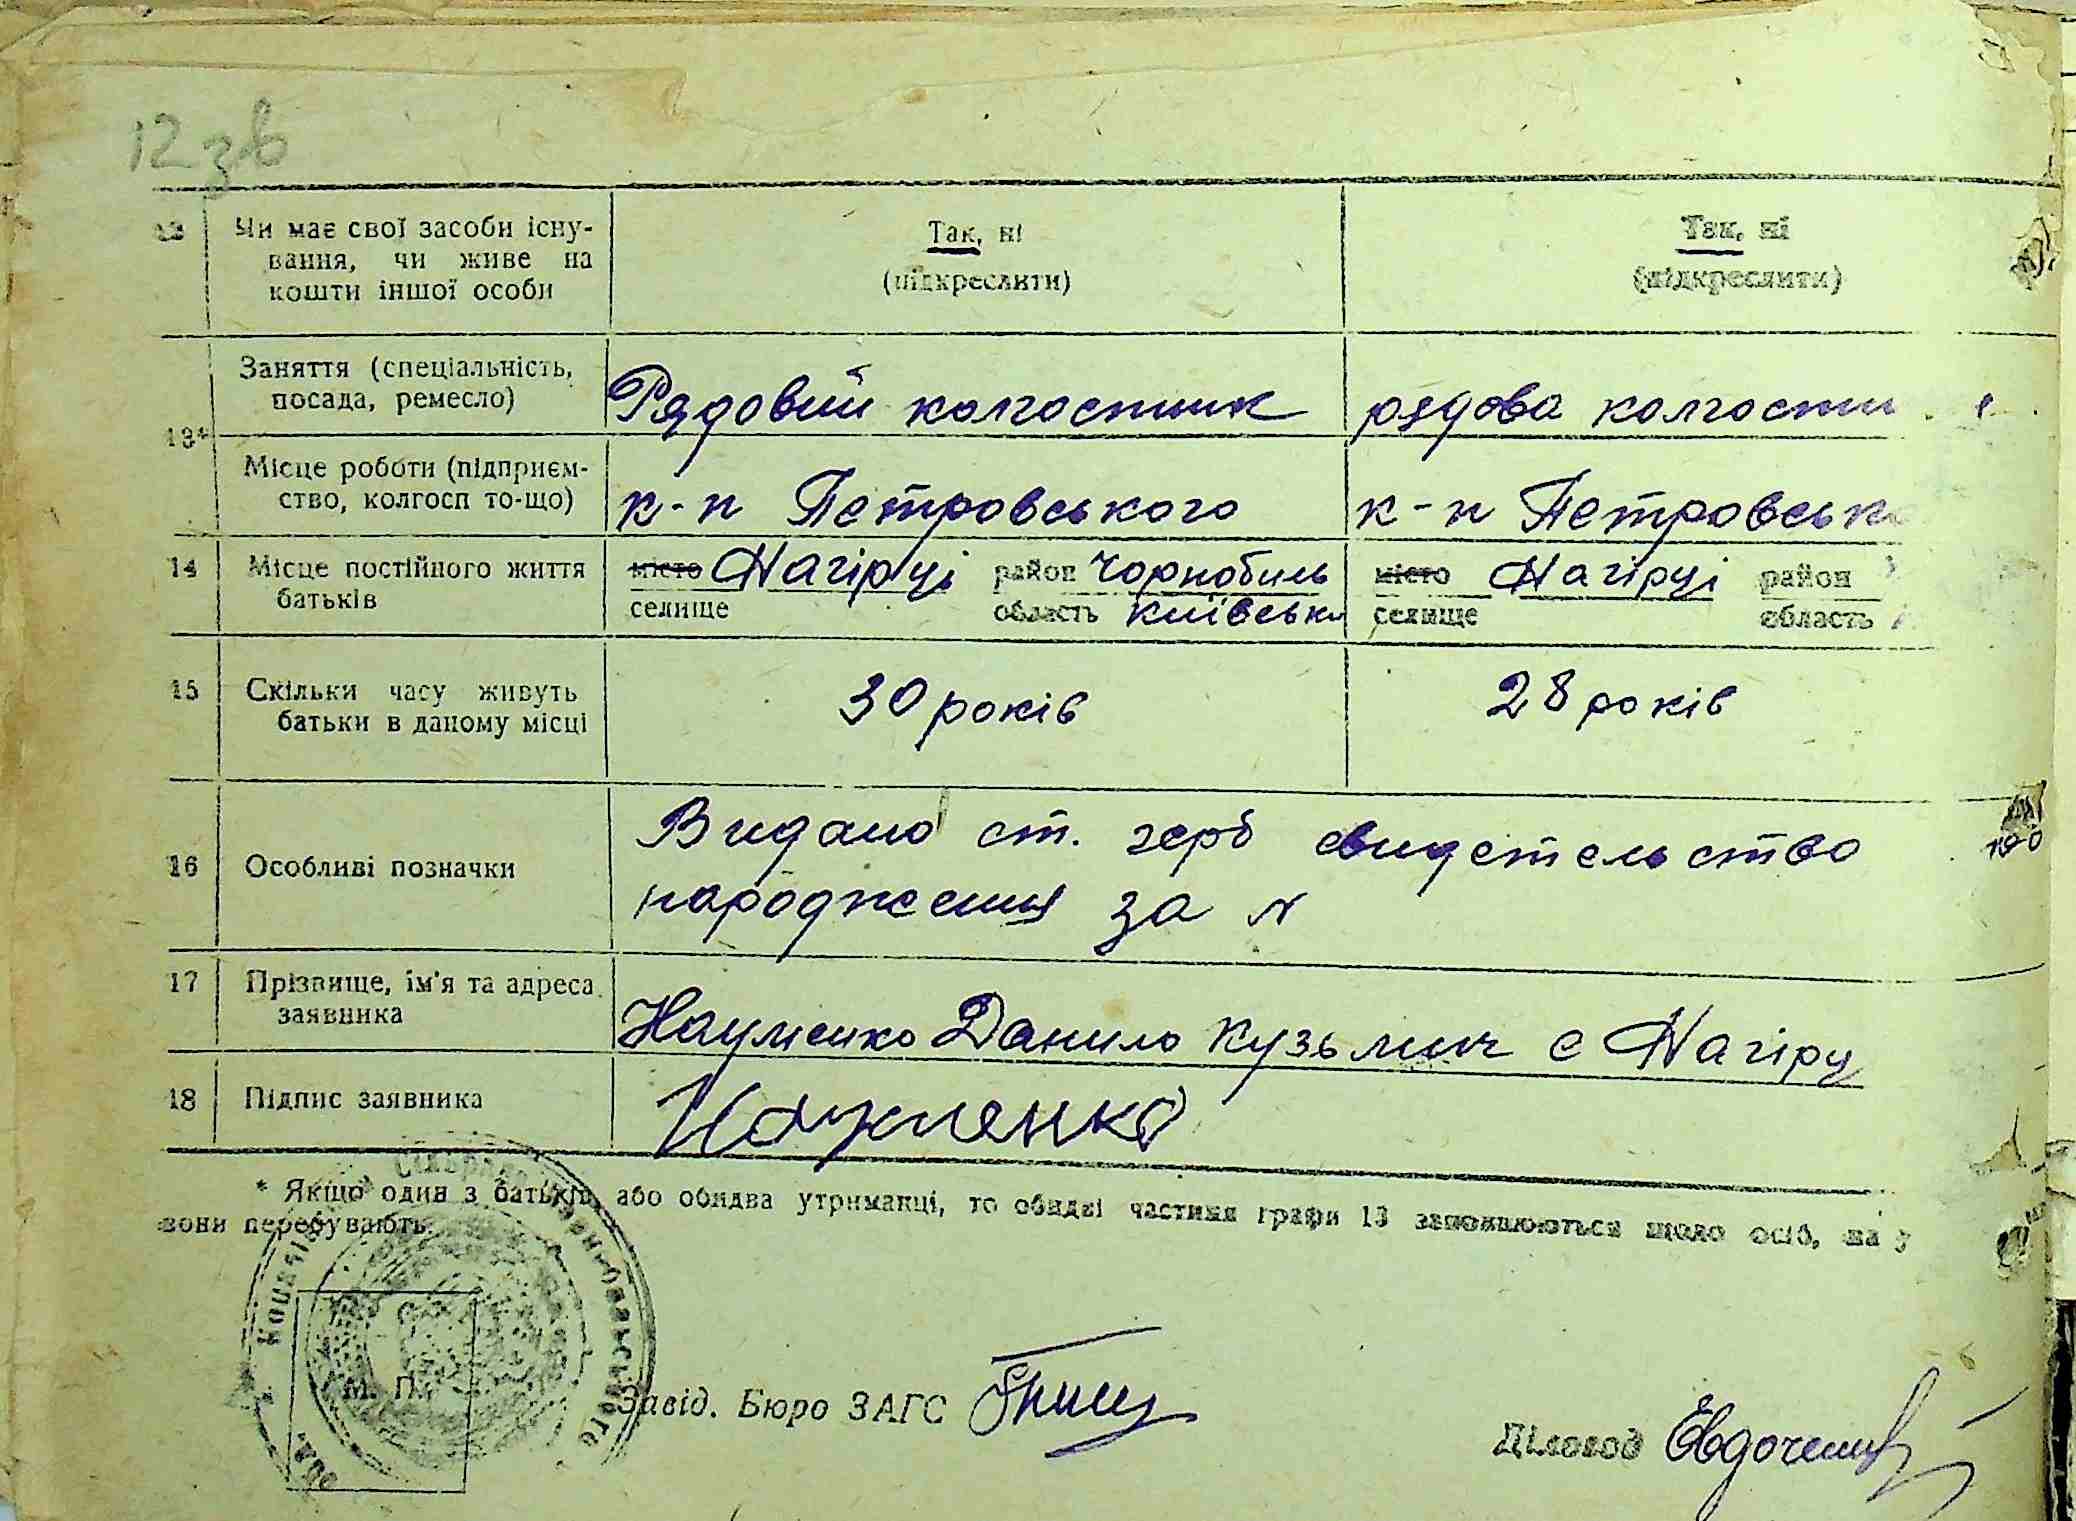 12 зв
Чи має свої засоби існу-
вання, чи живе на
кошти іншої особи
Так, ні
(підкреслити)
Так, ні
(підкреслити)
13*
Заняття (спеціальність,
посада, ремесло)
Рядовий колгоспник
рядова колгоспни
Місце роботи (підприєм-
ство, колгосп то-що)
к-п Петровського
к-п Петровсько
14
Місце постійного життя
батьків
місто Нагірці район Чорнобиль
селище область Київськ
місто Нагірці район
селище область
15
Скільки часу живуть
батьки в даному місці
30 років
28 років
16
Особливі позначки
Видано ст. герб свидетельство
народження за N
17
Прізвище, ім'я та адреса
заявника
Науменко Данило Кузьмич с Нагірц
18
Підпис заявника
Науменко
* Якщо один з батьків або обидва утриманці, то обидві частини графи 13 заповнюються щодо осіб, на у
вони перебувають.
М. П.
Завід. Бюро ЗАГС
Діловод